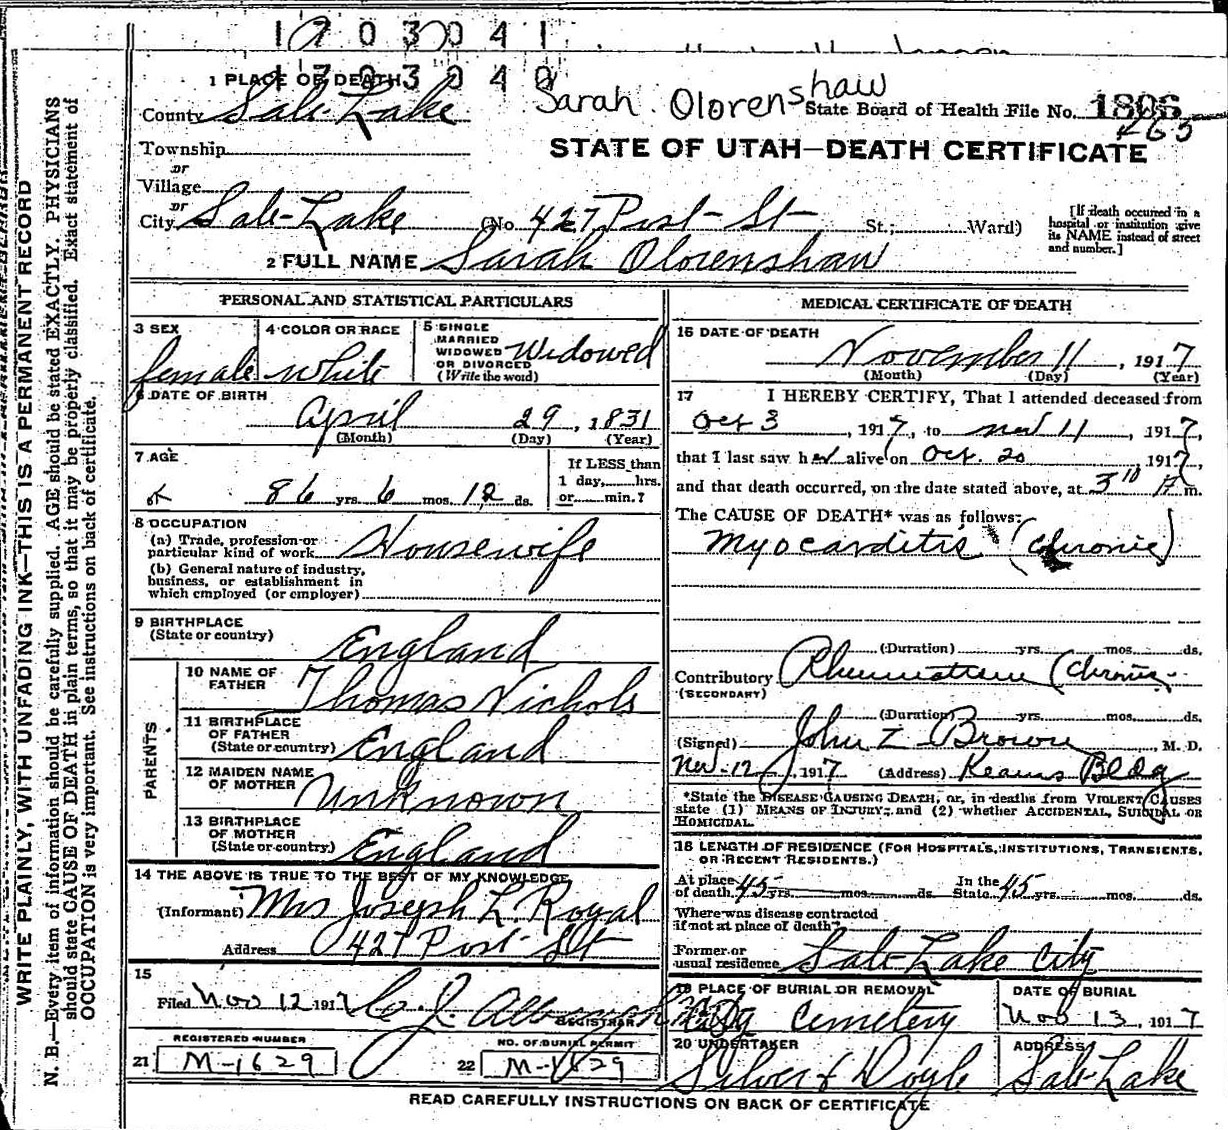 1703041
1703040
1 PLACE OF DEATH
County Salt Lake
Sarah Olorenshaw
State Board of Health File No. 1806
265
Township
or
Village
or
STATE OF UTAH—DEATH CERTIFICATE
City Salt Lake (No. 427 Post St St.; Ward)
[If death occurred in a hospital or institution give its NAME instead of street and number.]
2 FULL NAME Sarah Olorenshaw
PERSONAL AND STATISTICAL PARTICULARS
3 SEX
female
4 COLOR OR RACE
white
5 SINGLE
MARRIED
WIDOWED
OR DIVORCED
(Write the word)
Widowed
6 DATE OF BIRTH
April 29, 1831
(Month) (Day) (Year)
7 AGE
86 yrs. 6 mos. 12 ds.
If LESS than
1 day, hrs.
or min.?
8 OCCUPATION
(a) Trade, profession or
particular kind of work Housewife
(b) General nature of industry,
business, or establishment in
which employed (or employer)
9 BIRTHPLACE
(State or country) England
PARENTS
10 NAME OF
FATHER Thomas Nichols
11 BIRTHPLACE
OF FATHER
(State or country) England
12 MAIDEN NAME
OF MOTHER Unknown
13 BIRTHPLACE
OF MOTHER
(State or country) England
14 THE ABOVE IS TRUE TO THE BEST OF MY KNOWLEDGE
(Informant) Mrs Joseph L. Royal
Address 427 Post St
15
Filed Nov 12 1917 C. J.
REGISTRAR
REGISTERED NUMBER
21 M-1629
NO. OF BURIAL PERMIT
22 M-1629
MEDICAL CERTIFICATE OF DEATH
16 DATE OF DEATH
November 11, 1917
(Month) (Day) (Year)
17 I HEREBY CERTIFY, That I attended deceased from
Oct 3, 1917, to Nov 11, 1917,
that I last saw her alive on Oct. 20 1917,
and that death occurred, on the date stated above, at 3 10 A m.
The CAUSE OF DEATH* was as follows:
Myocarditis (chronic)
(Duration) yrs. mos. ds.
Contributory Rheumatism (chronic
(SECONDARY)
(Duration) yrs. mos. ds.
(Signed) John Z Brown, M. D.
Nov-12, 1917 (Address) Kearns Bldg
*State the DISEASE CAUSING DEATH, or, in deaths from VIOLENT CAUSES
state (1) MEANS OF INJURY; and (2) whether ACCIDENTAL, SUICIDAL OR
HOMICIDAL.
18 LENGTH OF RESIDENCE (FOR HOSPITALS, INSTITUTIONS, TRANSIENTS,
OR RECENT RESIDENTS.)
At place
of death 45 yrs. mos. ds. In the State 45 yrs. mos. ds.
Where was disease contracted
if not at place of death?
Former or
usual residence Salt Lake City
19 PLACE OF BURIAL OR REMOVAL
City Cemetery
DATE OF BURIAL
Nov 13, 1917
20 UNDERTAKER
Silver & Doyle
ADDRESS
Salt Lake
READ CAREFULLY INSTRUCTIONS ON BACK OF CERTIFICATE
WRITE PLAINLY, WITH UNFADING INK—THIS IS A PERMANENT RECORD
N. B.—Every item of information should be carefully supplied. AGE should be stated EXACTLY. PHYSICIANS
should state CAUSE OF DEATH in plain terms, so that it may be properly classified. Exact statement of
OCCUPATION is very important. See instructions on back of certificate.